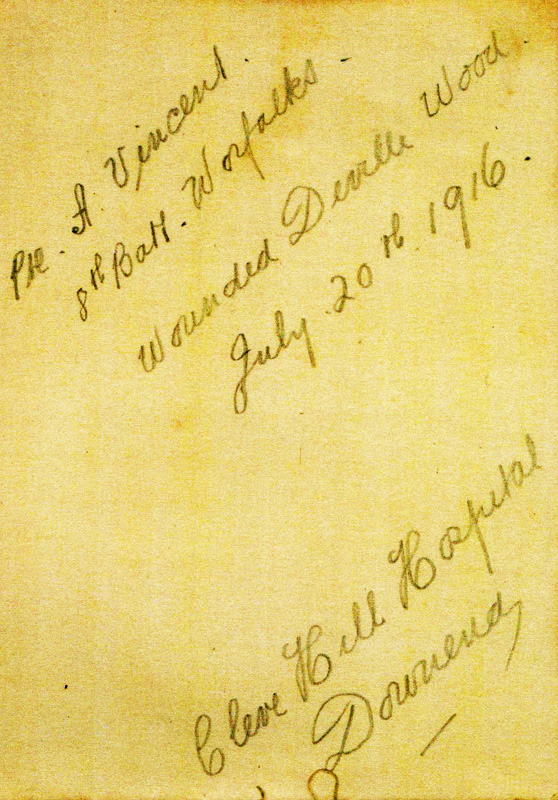 Pte. A. Vincent.
8th Batt. Norfolks.
Wounded Deville Wood.
July 20th 1916.
Cleve Hill Hospital
Downend